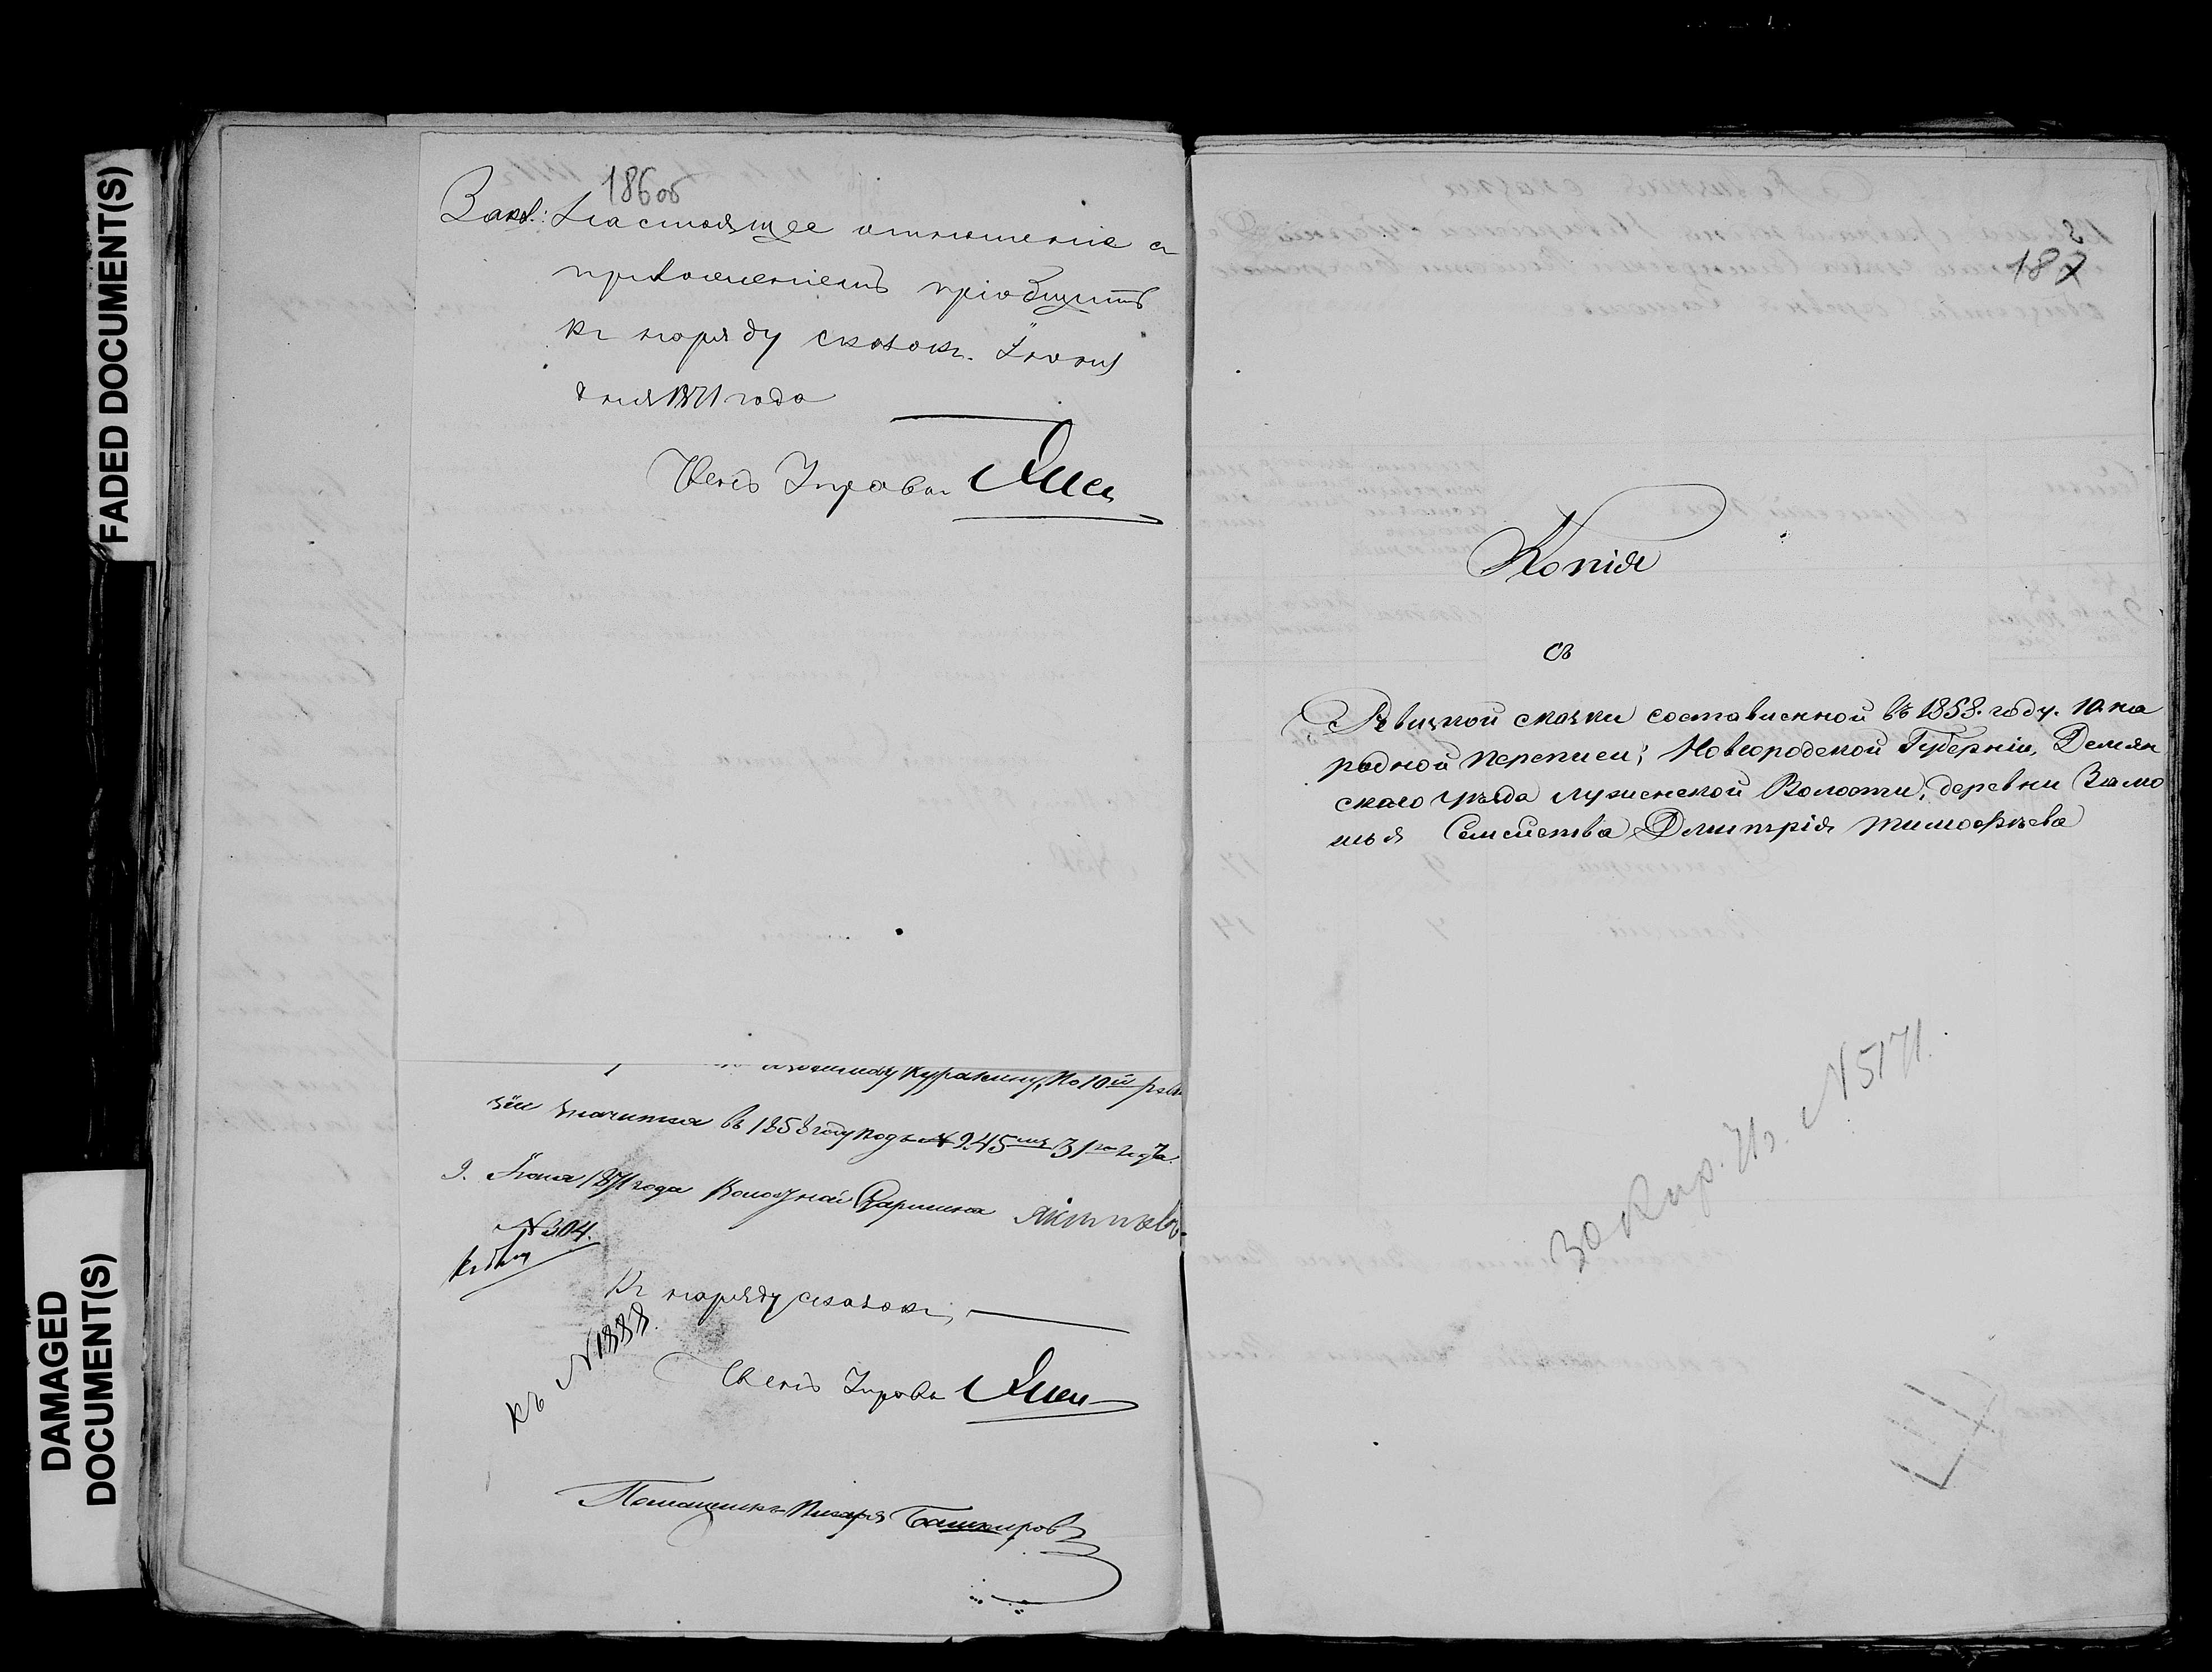 FADED DOCUMENT(S)
DAMAGED
DOCUMENT(S)
186 об
Закл.: Настоящее отношение съ
приложеніемъ пріобщить
къ наряду сказокъ. Іюня
дня 1871 года
Членъ Управы
Куракину, По 10й реви
зіи значится въ 1858 году подъ № 245 31го года.
9. Іюня 1871 года Волостной Старшина Якимовъ
№ 304.
Къ наряду сказокъ,
къ № 1888.
Членъ Управы
Помощникъ Писаря Башкировъ
2
187
Копія
съ
Ревизкой сказки составленной въ 1858. году. 10. на
родной переписи; Новгородской Губерніи, Демян
скаго уѣзда Луженской Волости, деревни Замо
шья Семейства Дмитрія Тимофѣева
За Кир. Из. № 5171.